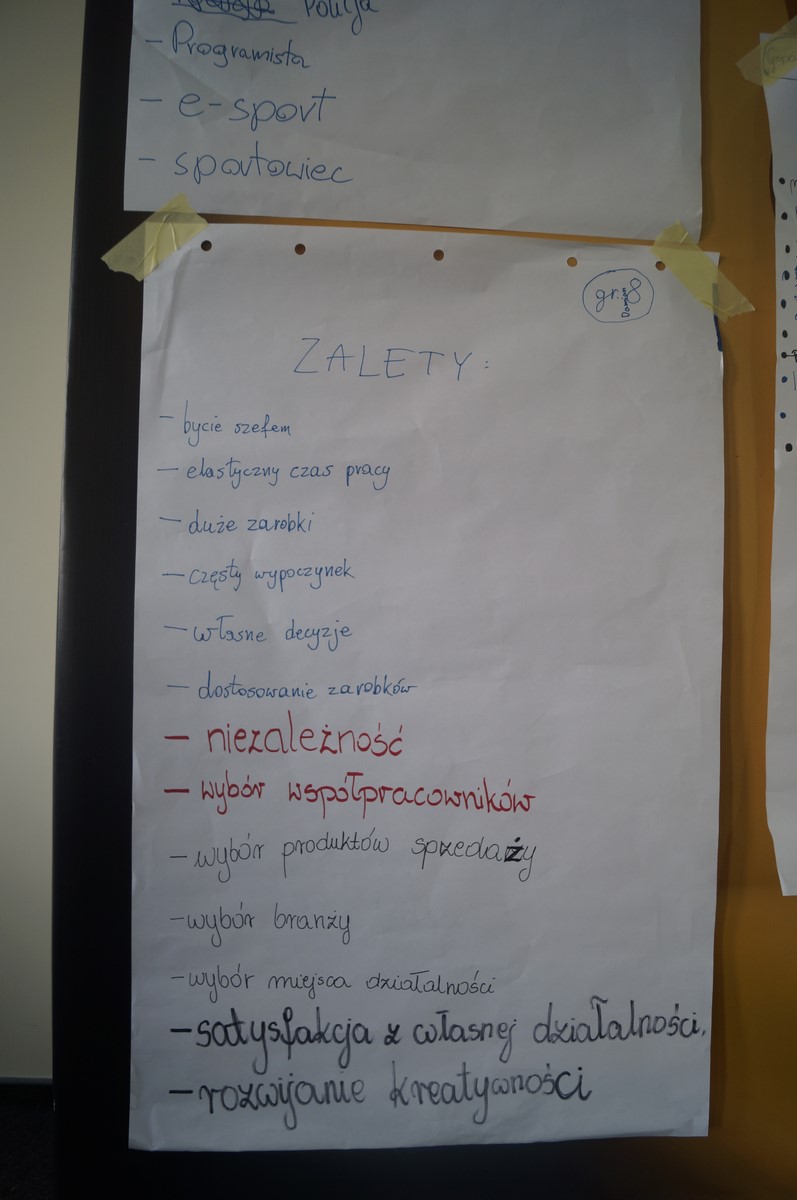 Policja
- Programista
- e-sport
- sportowiec
gr. 8
ZALETY:
- bycie szefem
- elastyczny czas pracy
- duże zarobki
- częsty wypoczynek
- własne decyzje
- dostosowanie zarobków
- niezależność
- wybór współpracowników
- wybór produktów sprzedaży
- wybór branży
- wybór miejsca działalności
- satysfakcja z własnej działalności.
- rozwijanie kreatywności